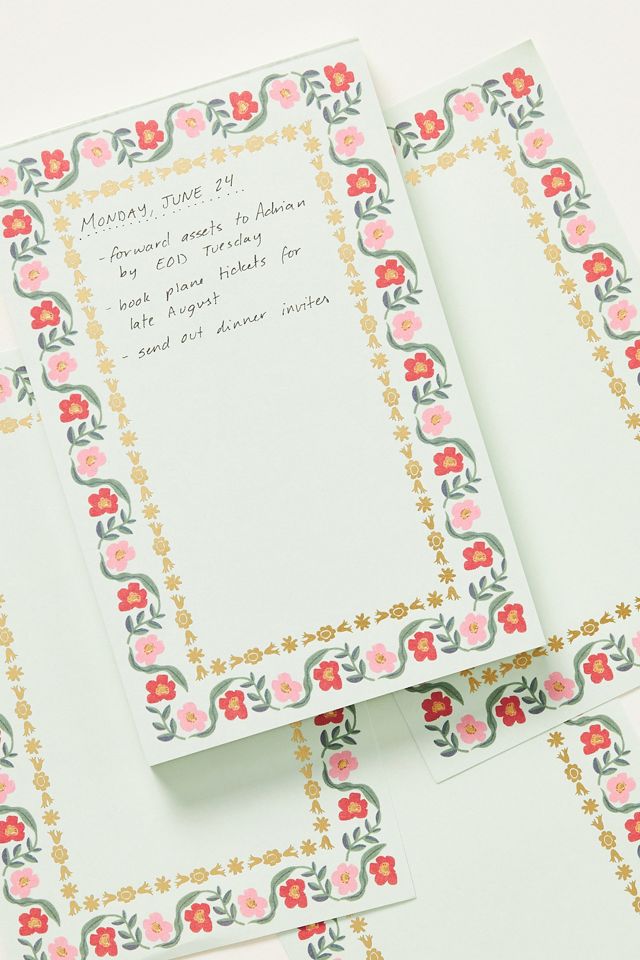 MONDAY, JUNE 24
- forward assets to Adrian
by EOD Tuesday
- book plane tickets for
late August
- send out dinner invites